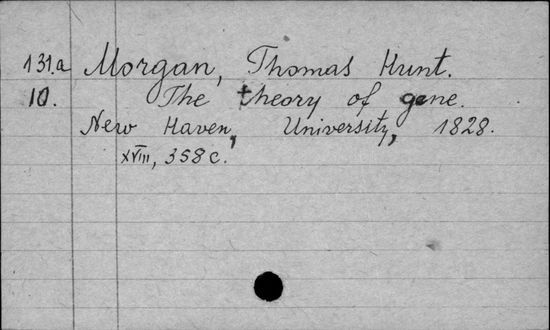 131.a Morgan, Thomas Hunt.
10. The theory of gene.
New Haven, University, 1828.
XVIII, 358 c.